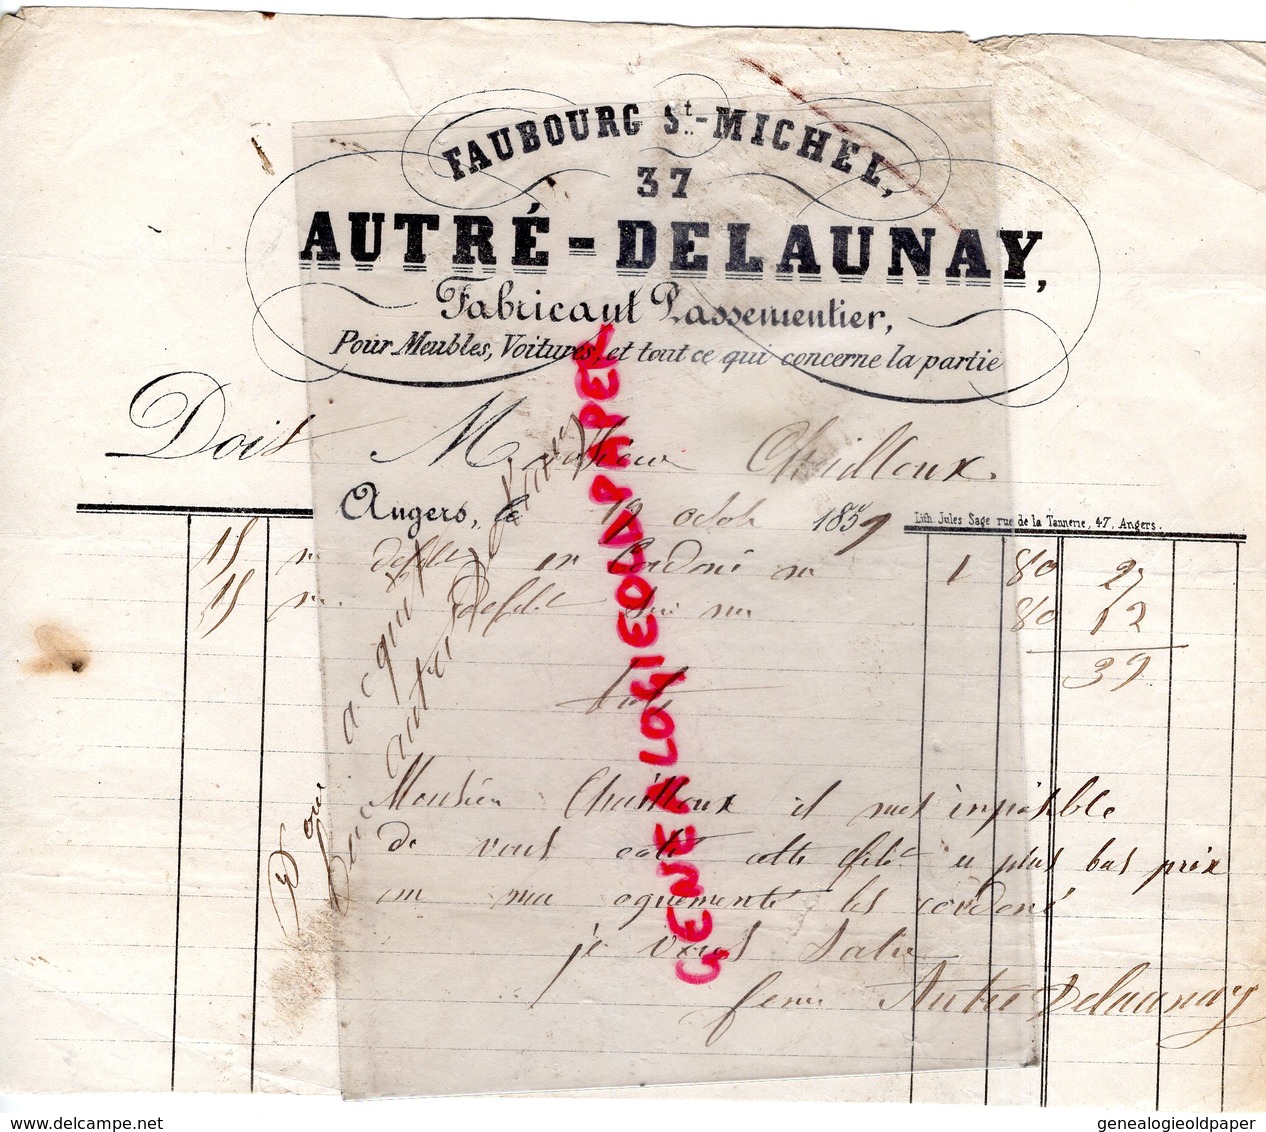 FAUBOURG St.-MICHEL,
37
AUTRÉ-DELAUNAY,
Fabricant Passementier,
Pour Meubles, Voitures, et tout ce qui concerne la partie
Doit Monsieur Chailloux
Angers, le 19 octob 1859
Lith. Jules Sage rue de la Tannerie, 47, Angers.
15 m en Cordoné 1 80 27
15 m 80 12
39
Monsieur Chailloux il mes impossible
de vous cette a plus bas prix
on ma ogmenté les cordoné
je vous salue
feme Autré Delaunay
Pour acquit
GENEALOGIEOLDPAPER
delcampe.net
genealogieoldpaper